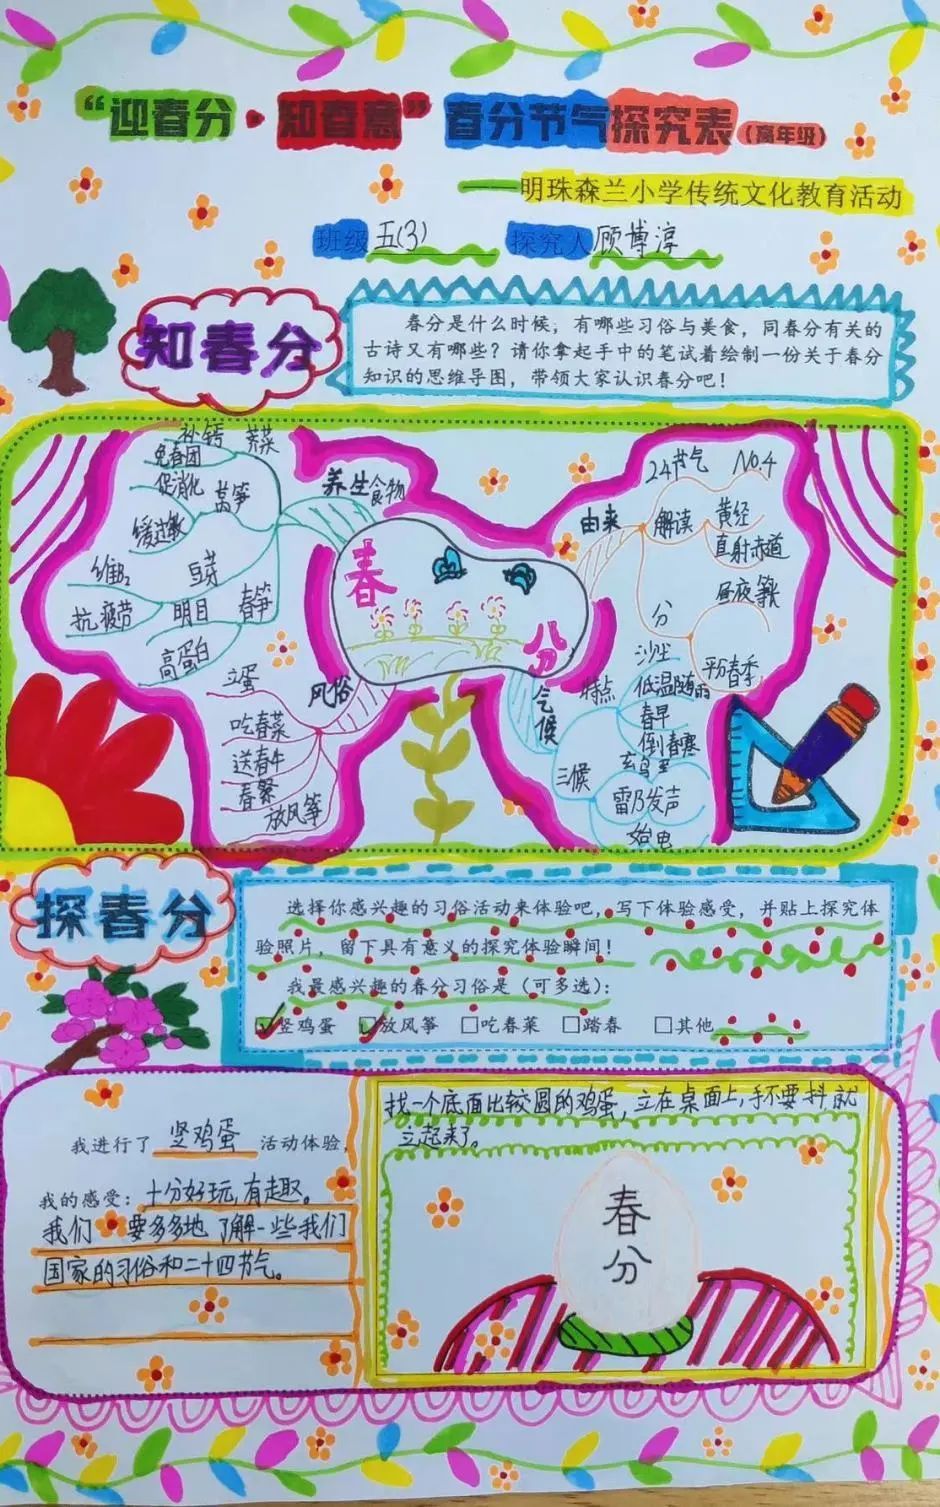 “迎春分·知春意”春分节气探究表(高年级)
——明珠森兰小学传统文化教育活动
班级 五(3) 探究人 顾博淳
知春分
春分是什么时候，有哪些习俗与美食，同春分有关的
古诗又有哪些？请你拿起手中的笔试着绘制一份关于春分
知识的思维导图，带领大家认识春分吧！
春分
养生食物
补钙
荠菜
促消化
莴笋
缓过敏
维B2
豆芽
抗疲劳
明目
春笋
高蛋白
风俗
立蛋
吃春菜
送春牛
春祭
放风筝
由来
24节气 NO.4
解读
黄经
直射赤道
分
昼夜等长
平分春季
气候
特点
沙尘
低温阴雨
春旱
倒春寒
三候
玄鸟至
雷乃发声
始电
探春分
选择你感兴趣的习俗活动来体验吧，写下体验感受，并贴上探究体
验照片，留下具有意义的探究体验瞬间！
我最感兴趣的春分习俗是（可多选）：
☑竖鸡蛋 ☑放风筝 □吃春菜 □踏春 □其他
我进行了 竖鸡蛋 活动体验，
我的感受：十分好玩，有趣。
我们要多多地了解一些我们
国家的习俗和二十四节气。
找一个底面比较圆的鸡蛋，立在桌面上，手不要抖，就
立起来了。
春
分